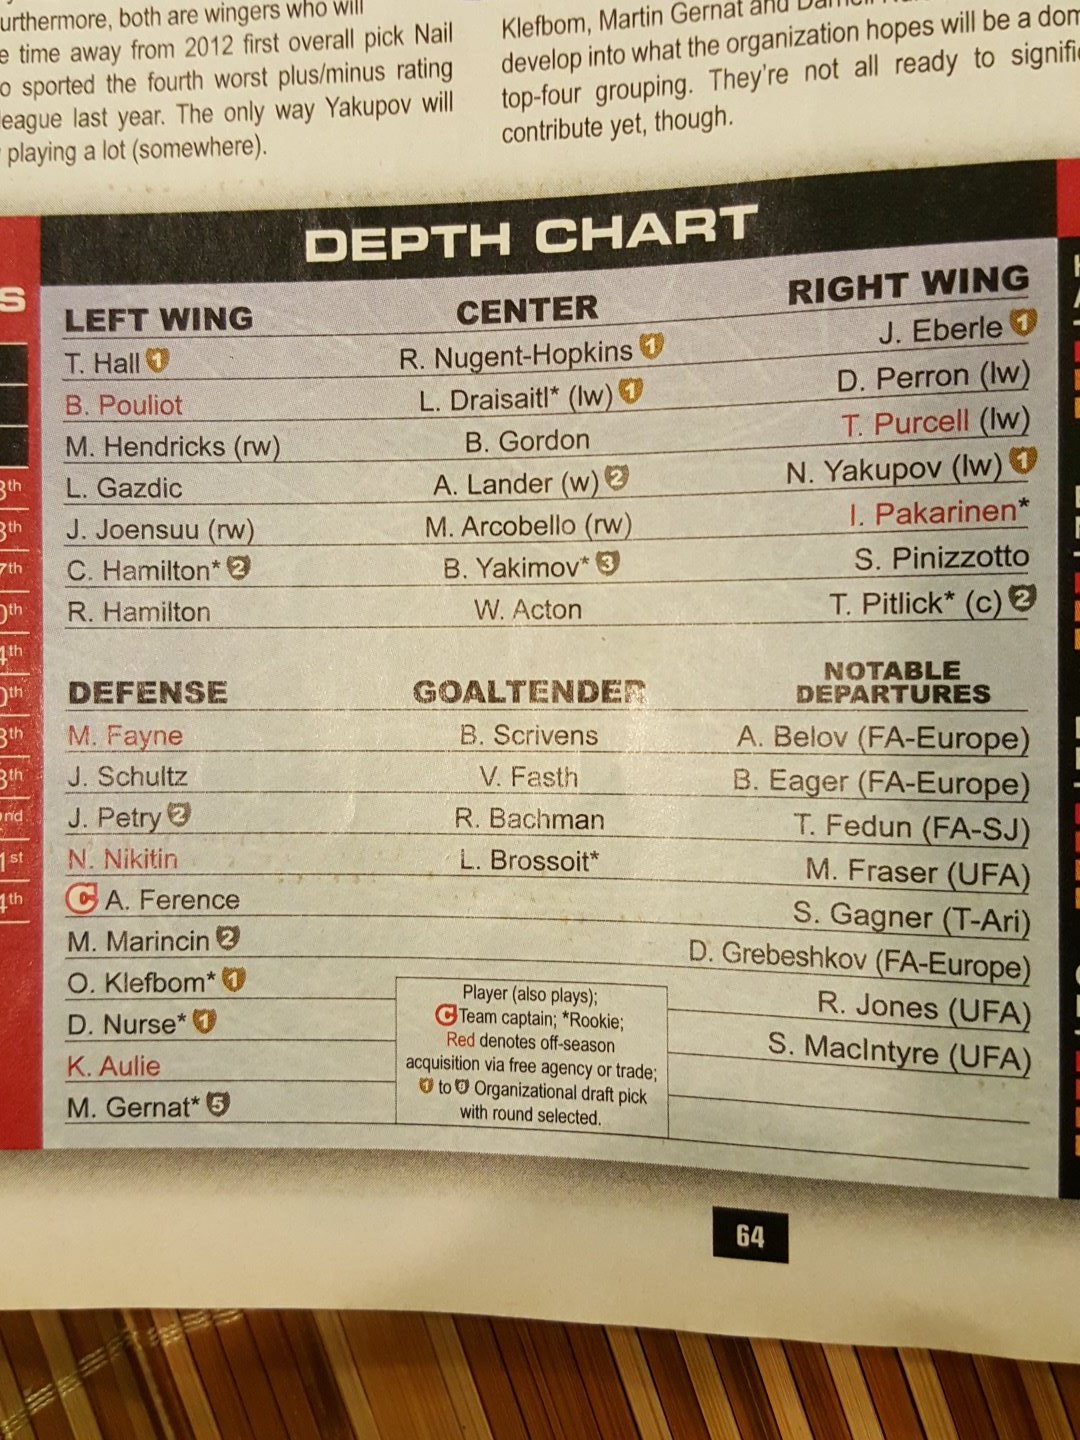 urthermore, both are wingers who will
e time away from 2012 first overall pick Nail
o sported the fourth worst plus/minus rating
league last year. The only way Yakupov will
playing a lot (somewhere).
Klefbom, Martin Gernat and
develop into what the organization hopes will be a dom
top-four grouping. They're not all ready to signific
contribute yet, though.
DEPTH CHART
LEFT WING CENTER RIGHT WING
T. Hall 1 R. Nugent-Hopkins 1 J. Eberle 1
B. Pouliot L. Draisaitl* (lw) 1 D. Perron (lw)
M. Hendricks (rw) B. Gordon T. Purcell (lw)
L. Gazdic A. Lander (w) 2 N. Yakupov (lw) 1
J. Joensuu (rw) M. Arcobello (rw) I. Pakarinen*
C. Hamilton* 2 B. Yakimov* 3 S. Pinizzotto
R. Hamilton W. Acton T. Pitlick* (c) 2
DEFENSE GOALTENDER NOTABLE DEPARTURES
M. Fayne B. Scrivens A. Belov (FA-Europe)
J. Schultz V. Fasth B. Eager (FA-Europe)
J. Petry 2 R. Bachman T. Fedun (FA-SJ)
N. Nikitin L. Brossoit* M. Fraser (UFA)
C A. Ference S. Gagner (T-Ari)
M. Marincin 2 D. Grebeshkov (FA-Europe)
O. Klefbom* 1 R. Jones (UFA)
D. Nurse* 1 S. MacIntyre (UFA)
K. Aulie
M. Gernat* 5
Player (also plays);
C Team captain; *Rookie;
Red denotes off-season
acquisition via free agency or trade;
1 to 9 Organizational draft pick
with round selected.
64